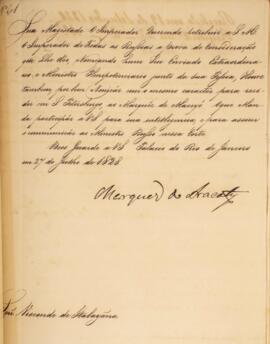 Sua Magestade O Imperador Querendo retribuir a S. M.
O Imperador de Todas as Russias a prova de Consideração
que lhe dêo Nomeando hum Seu Enviado Extraordina-
rio, e Ministro Plenipotenciario junto da Sua Pessoa, Houve
tambem por bem Nomear no mesmo caracter para resi-
dir em S. Petersburgo, ao Marquez de Maceyó. O que Man-
da participar a VS. para sua intelligencia, e para assim
o communicar ao Ministro Russo nessa Corte.
Deos Guarde a VS. Palacio do Rio de Janeiro
em 27 de Julho de 1828.
Marquez de Aracaty
Snr. Visconde de Itabayana.